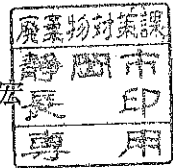 廃棄物対策課
静岡市
宏
長印
専用